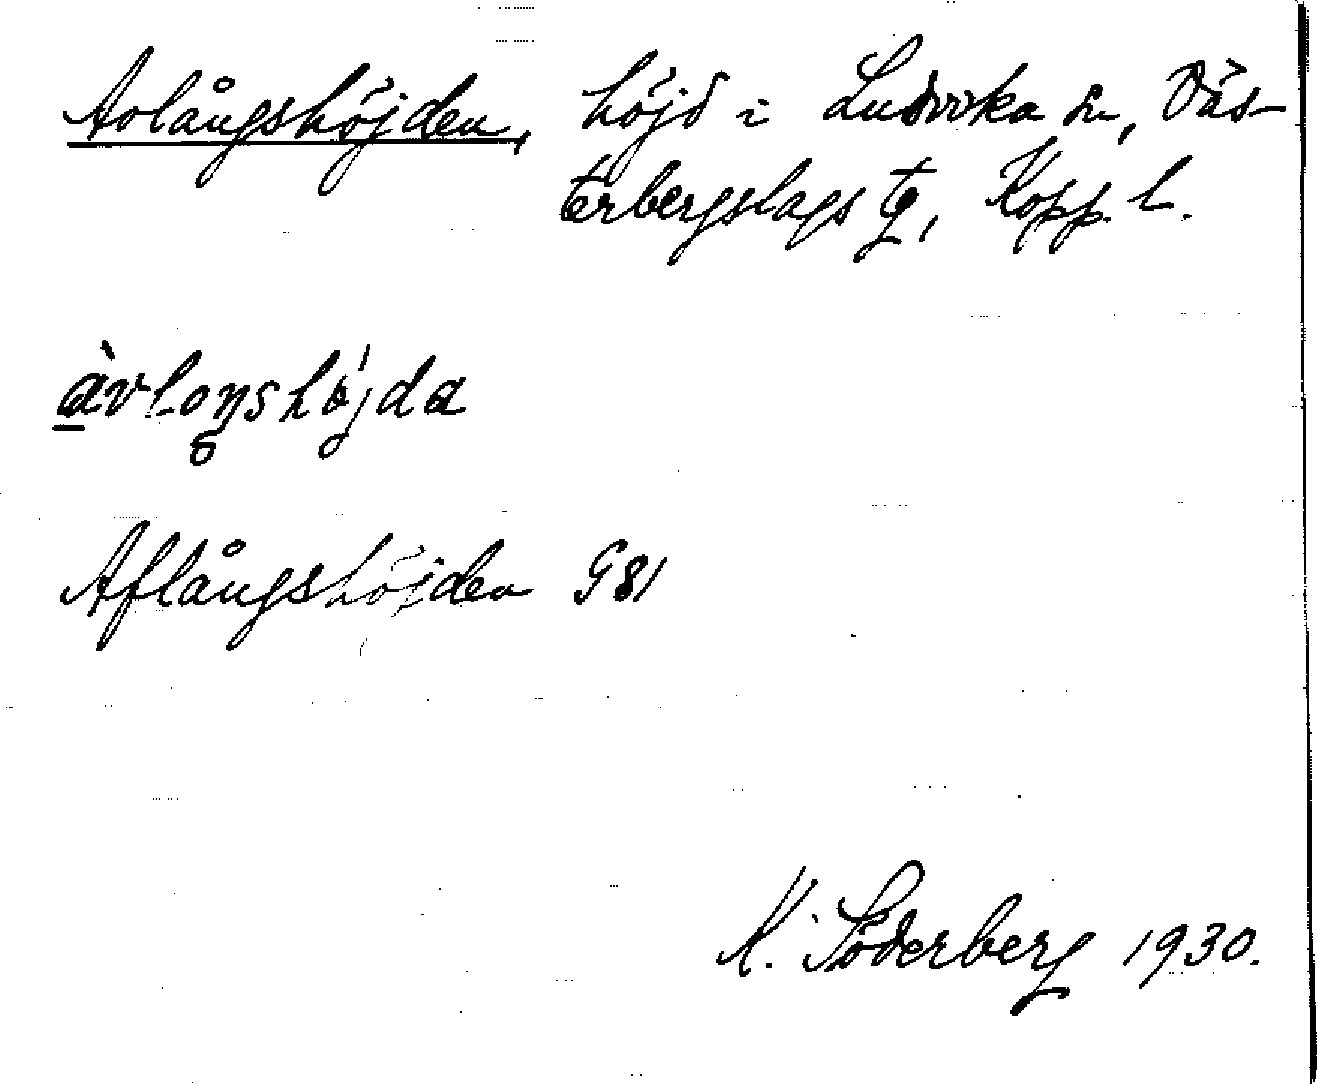 Avlångshöjden, höjd i Ludvika sn, Väs-
terbergslags tg, Kopp. l.
àvloŋshöjda
Aflångshöjden G81
K. Söderberg 1930.